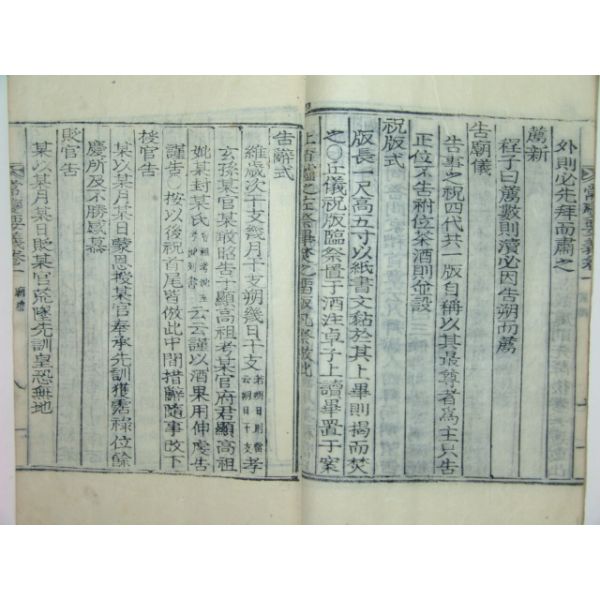 外則必先拜而肅之
薦新
程子曰薦數則瀆必因告朔而薦
告廟儀
告事之祝四代共一版自稱以其最尊者爲主只告
正位不告祔位茶酒則並設
祝版式
版長一尺高五寸以紙書文黏於其上畢則揭而焚
之○丘儀祝版臨祭置于酒注卓子上讀畢置于案
上香爐之
告辭式
維歲次干支幾月干支朔幾日干支若朔日則當云朔日干支孝
玄孫某官某敢昭告于顯高祖考某官府君顯高祖
妣某封某氏云云謹以酒果用伸虔告
謹告○按以後祝首尾皆倣此中間措辭隨事改下
授官告
某以某月某日蒙恩授某官奉承先訓獲霑祿位餘
慶所及不勝感慕
貶官告
某以某月某日貶某官荒墜先訓皇恐無地